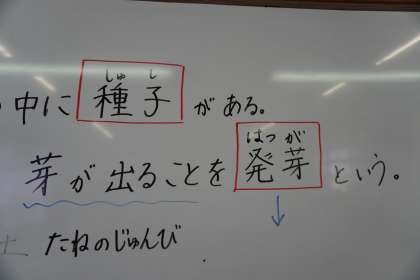 しゅ し
中に 種子 がある。
はつ が
芽が出ることを 発芽 という。
たねのじゅんび